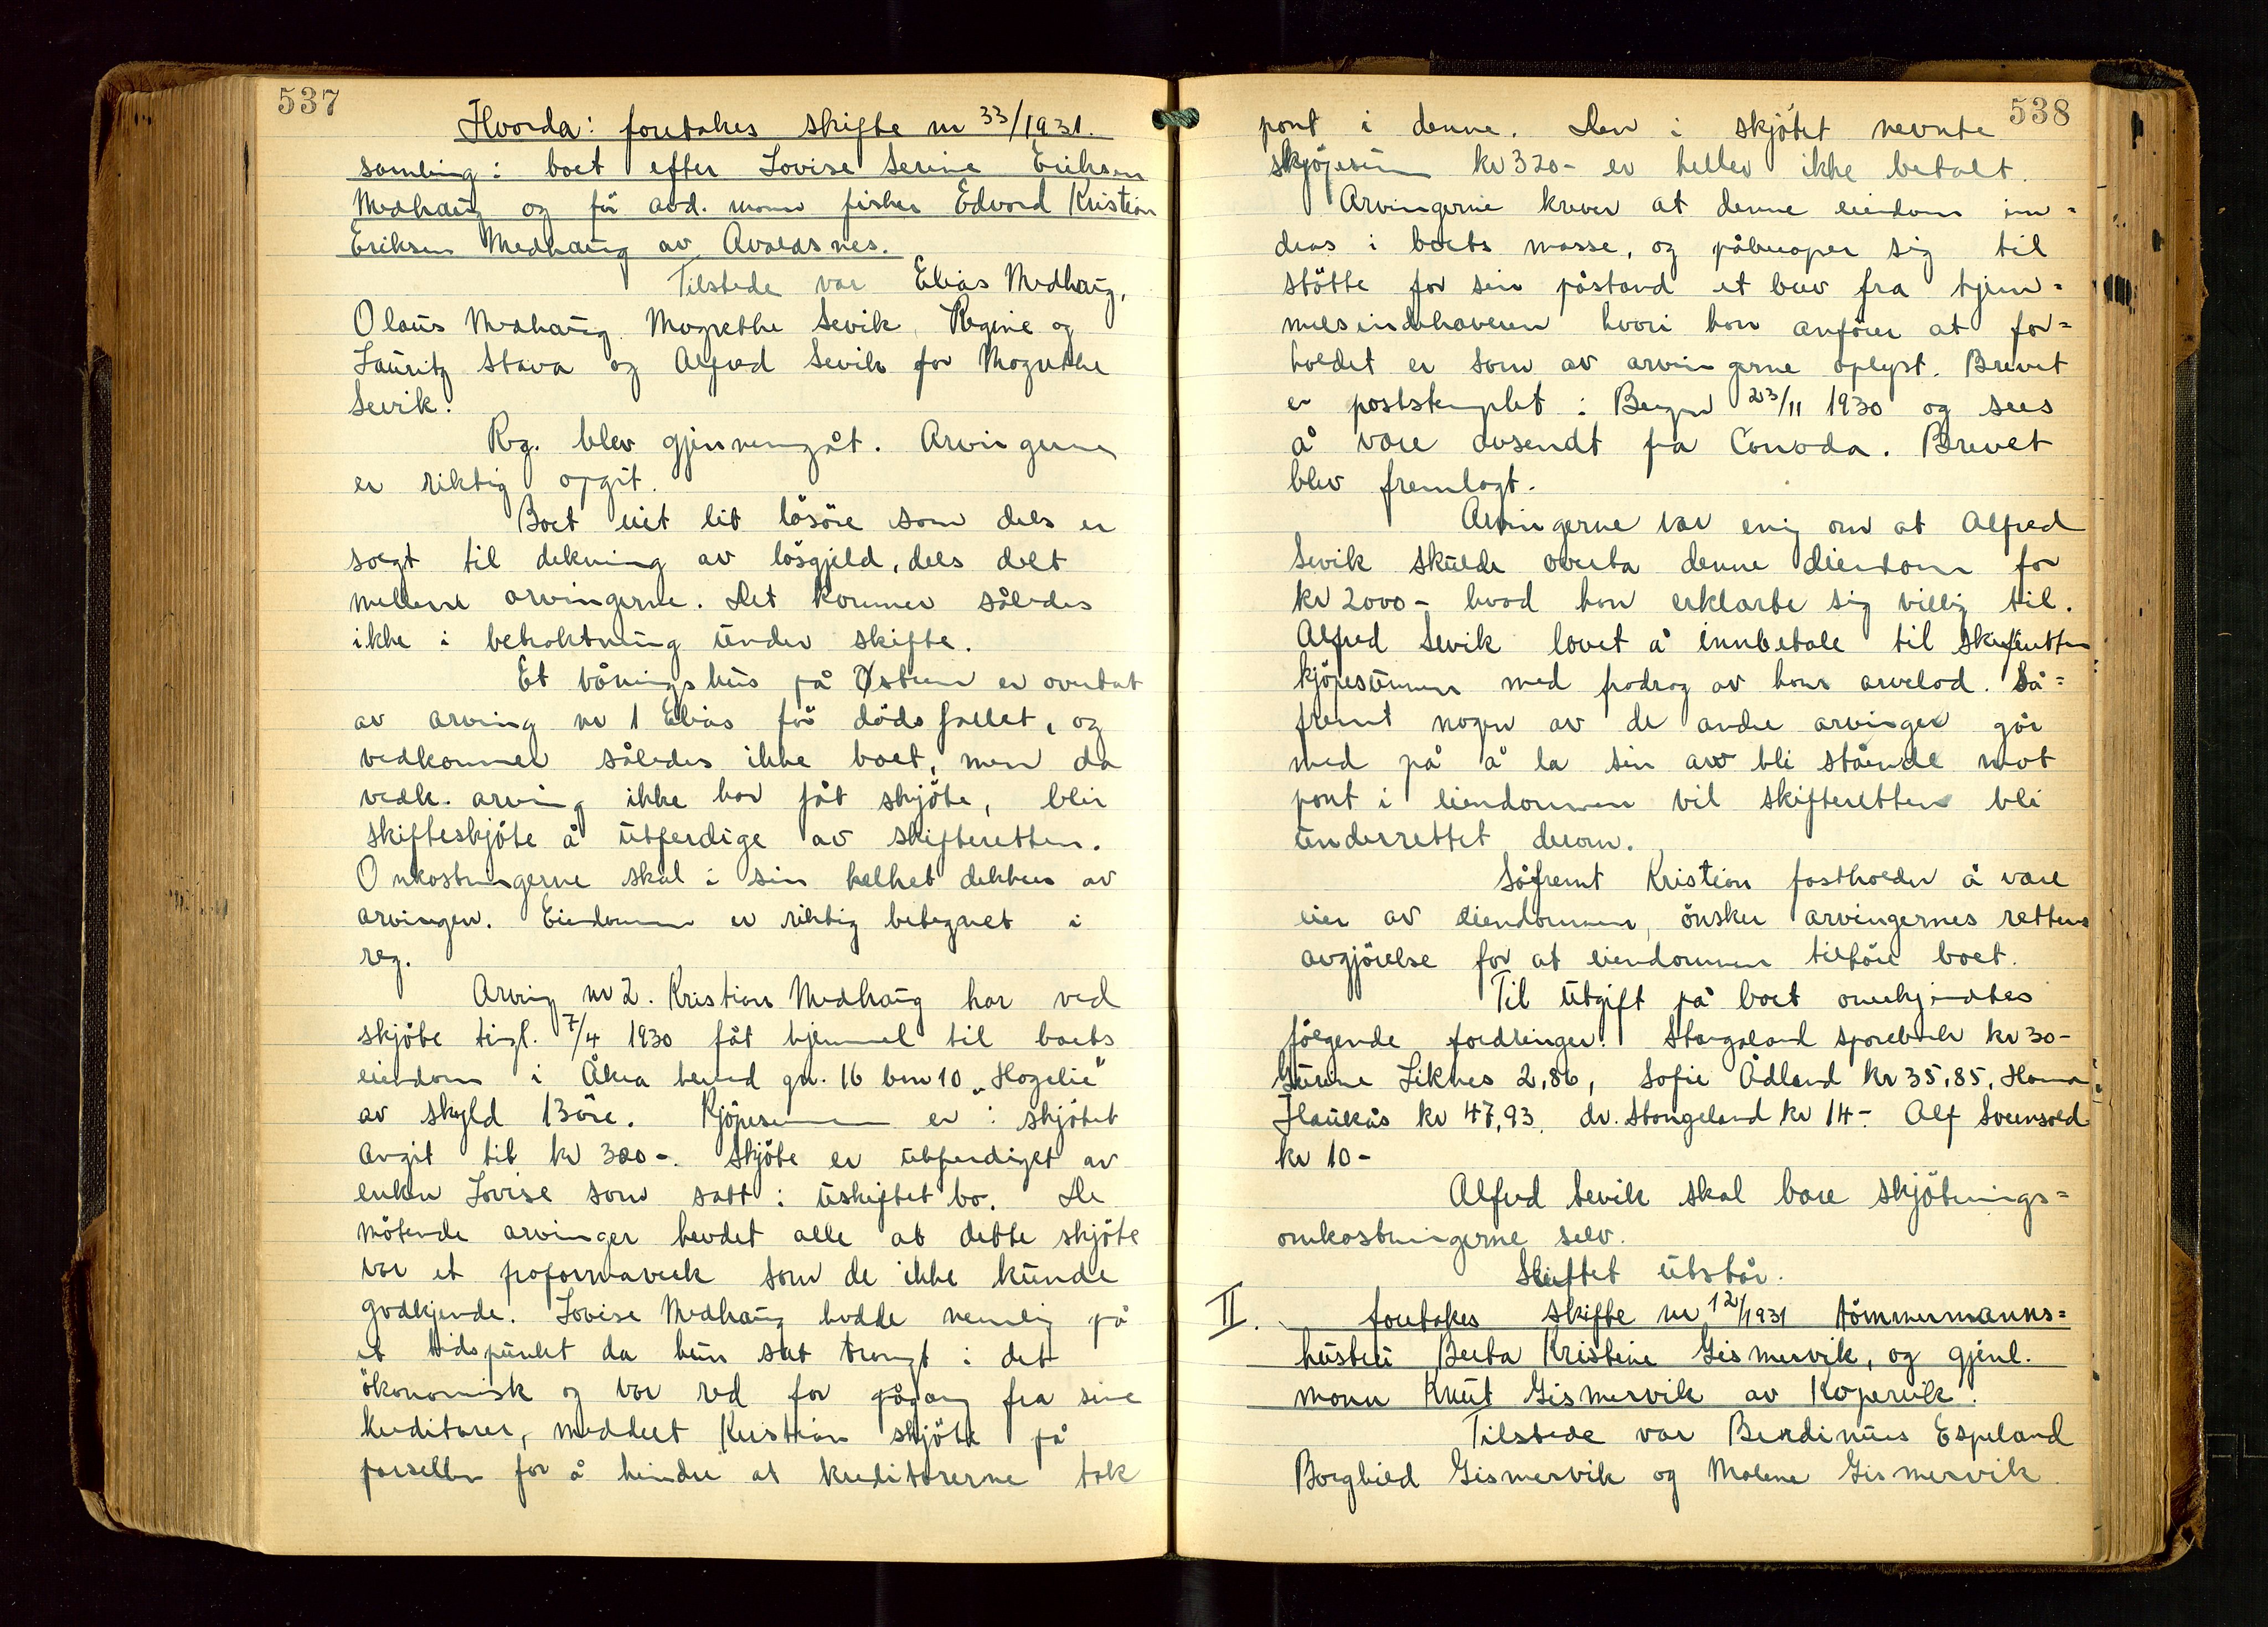 537
Hvorda: foretokes skifte nr 33/1931.
samling i boet efter Lovise Serine Eriksen
Medhaug og før avd. mann fisker Edvard Kristian
Eriksen Medhaug av Avaldsnes.
Tilstede var Elias Medhaug,
Olaus Medhaug Magrethe Sevik, Regine og
Lauritz Stava og Alfred Sevik for Magrethe
Sevik.
Rg. blev gjennemgåt. Arvingerne
er riktig opgit.
Boet eiet lit løsøre som dels er
solgt til dekning av løsgjeld, dels delt
mellem arvingerne. Det kommer således
ikke i betraktning under skifte.
Et våningshus på Østrem er overtat
av arving nr 1 Elias før dødsfallet, og
vedkommer således ikke boet, men da
vedk. arving ikke har fåt skjøte, blir
skifteskjøte å utferdige av skifteretten.
Omkostningerne skal i sin helhet dekkes av
arvingen. Eiendommen er riktig betegnet i
reg.
Arving nr 2. Kristian Medhaug har ved
skjøte tingl. 7/4 1930 fåt hjemmel til boets
eiendom i Åkra herred gnr. 16 bnr 10 "Hagelie"
av skyld 13 øre. Kjøpesummen er i skjøtet
avgit til kr 320-. Skjøte er utferdiget av
enken Lovise som satt i uskiftet bo. De
møtende arvinger hevdet alle at dette skjøte
var et proformaverk som de ikke kunde
godkjende. Lovise Medhaug hadde nemlig på
et tidspunkt da hun sat trangt i det
økonomisk og var red for pågang fra sine
kreditorer, meddelt Kristian skjøte på
parsellen for å hindre at kreditorerne tok
538
pant i denne. Den i skjøtet nevnte
skjøpesum kr 320- er heller ikke betalt.
Arvingerne krever at denne eiendom inn=
dras i boets masse, og påberoper sig til
støtte for sin påstand et brev fra hjem=
melsindehaveren hvori han anfører at for=
holdet er som av arvingerne oplyst. Brevet
er poststemplet i Bergen 23/11 1930 og sees
å være avsendt fra Canada. Brevet
blev fremlagt.
Arvingerne var enig om at Alfred
Sevik skulde overta denne eiendom for
kr 2000- hvad han erklærte sig villig til.
Alfred Sevik lovet å innbetale til skifteretten
kjøpesummen med fradrag av hans arvelod. Så=
fremt nogen av de andre arvinger går
med på å la sin arv bli stående mot
pant i eiendommen vil skifteretten bli
underrettet derom.
Såfremt Kristian fastholder å være
eier av eiendommen, ønsker arvingernes rettens
avgjørelse for at eiendommen tilhøre boet.
Til utgift på boet anerkjendtes
følgende fordringer: Stangaland sparebank kr 30-
Liknes 2,86, Sofie Ådland kr 35,85, Hanna
Haukås kr 47,93. dr. Stangeland kr 14- Alf Svensvold
kr 10-
Alfred Sevik skal bare skjøtnings=
omkostningerne selv.
Skiftet utstår.
II. foretokes skifte nr 12/1931 tømmermanns=
hustru Berta Kristine Gismervik, og gjenl.
mann Knut Gismervik av Kopervik.
Tilstede var Berdinius Espeland
Borghild Gismervik og Malene Gismervik